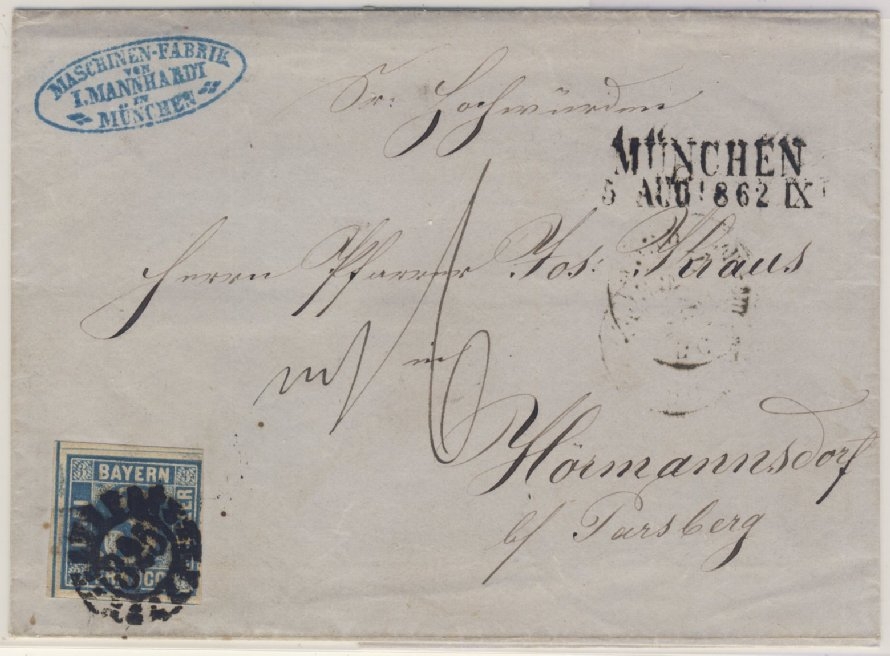 MASCHINEN-FABRIK
VON
I. MANNHARDT
IN
MÜNCHEN
Sr: Hochwürden
MÜNCHEN
5 AUG 1862 IX
Herrn Pfarrer Jos: Kraus
in
Hörmannsdorf
b/ Parsberg
BAYERN